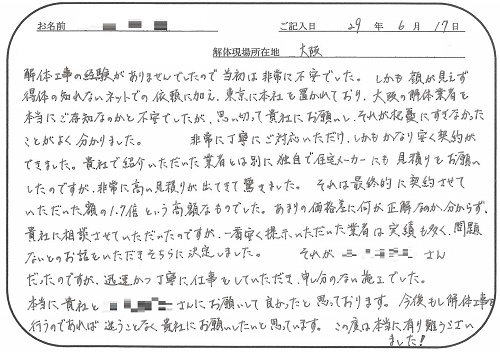 お名前 ご記入日 29 年 6 月 17 日
解体現場所在地 大阪
解体工事の経験がありませんでしたので当初は非常に不安でした。しかも顔が見えず
得体の知れないネットでの依頼に加え、東京に本社を置かれており、大阪の解体業者を
本当にご存知なのかと不安でしたが、思い切って貴社にお願いし、それが杞憂にすぎなかった
ことがよく分かりました。 非常に丁寧にご対応いただけ、しかもかなり安く契約が
できました。貴社で紹介いただいた業者とは別に独自で住宅メーカーにも見積りをお願い
したのですが、非常に高い見積りが出てきて驚きました。それは最終的に契約させて
いただいた額の1.7倍という高額なものでした。あまりの価格差に何が正解なのか分からず、
貴社に相談させていただいたのですが、一番安く提示いただいた業者は実績も多く、問題
ないとのお話をいただきそちらに決定しました。 それが さん
だったのですが、迅速かつ丁寧に仕事をしていただき、申し分のない施工でした。
本当に貴社と さんにお願いして良かったと思っております。今後もし解体工事を
行うのであれば迷うことなく貴社にお願いしたいと思っています。この度は本当に有り難うござい
ました!